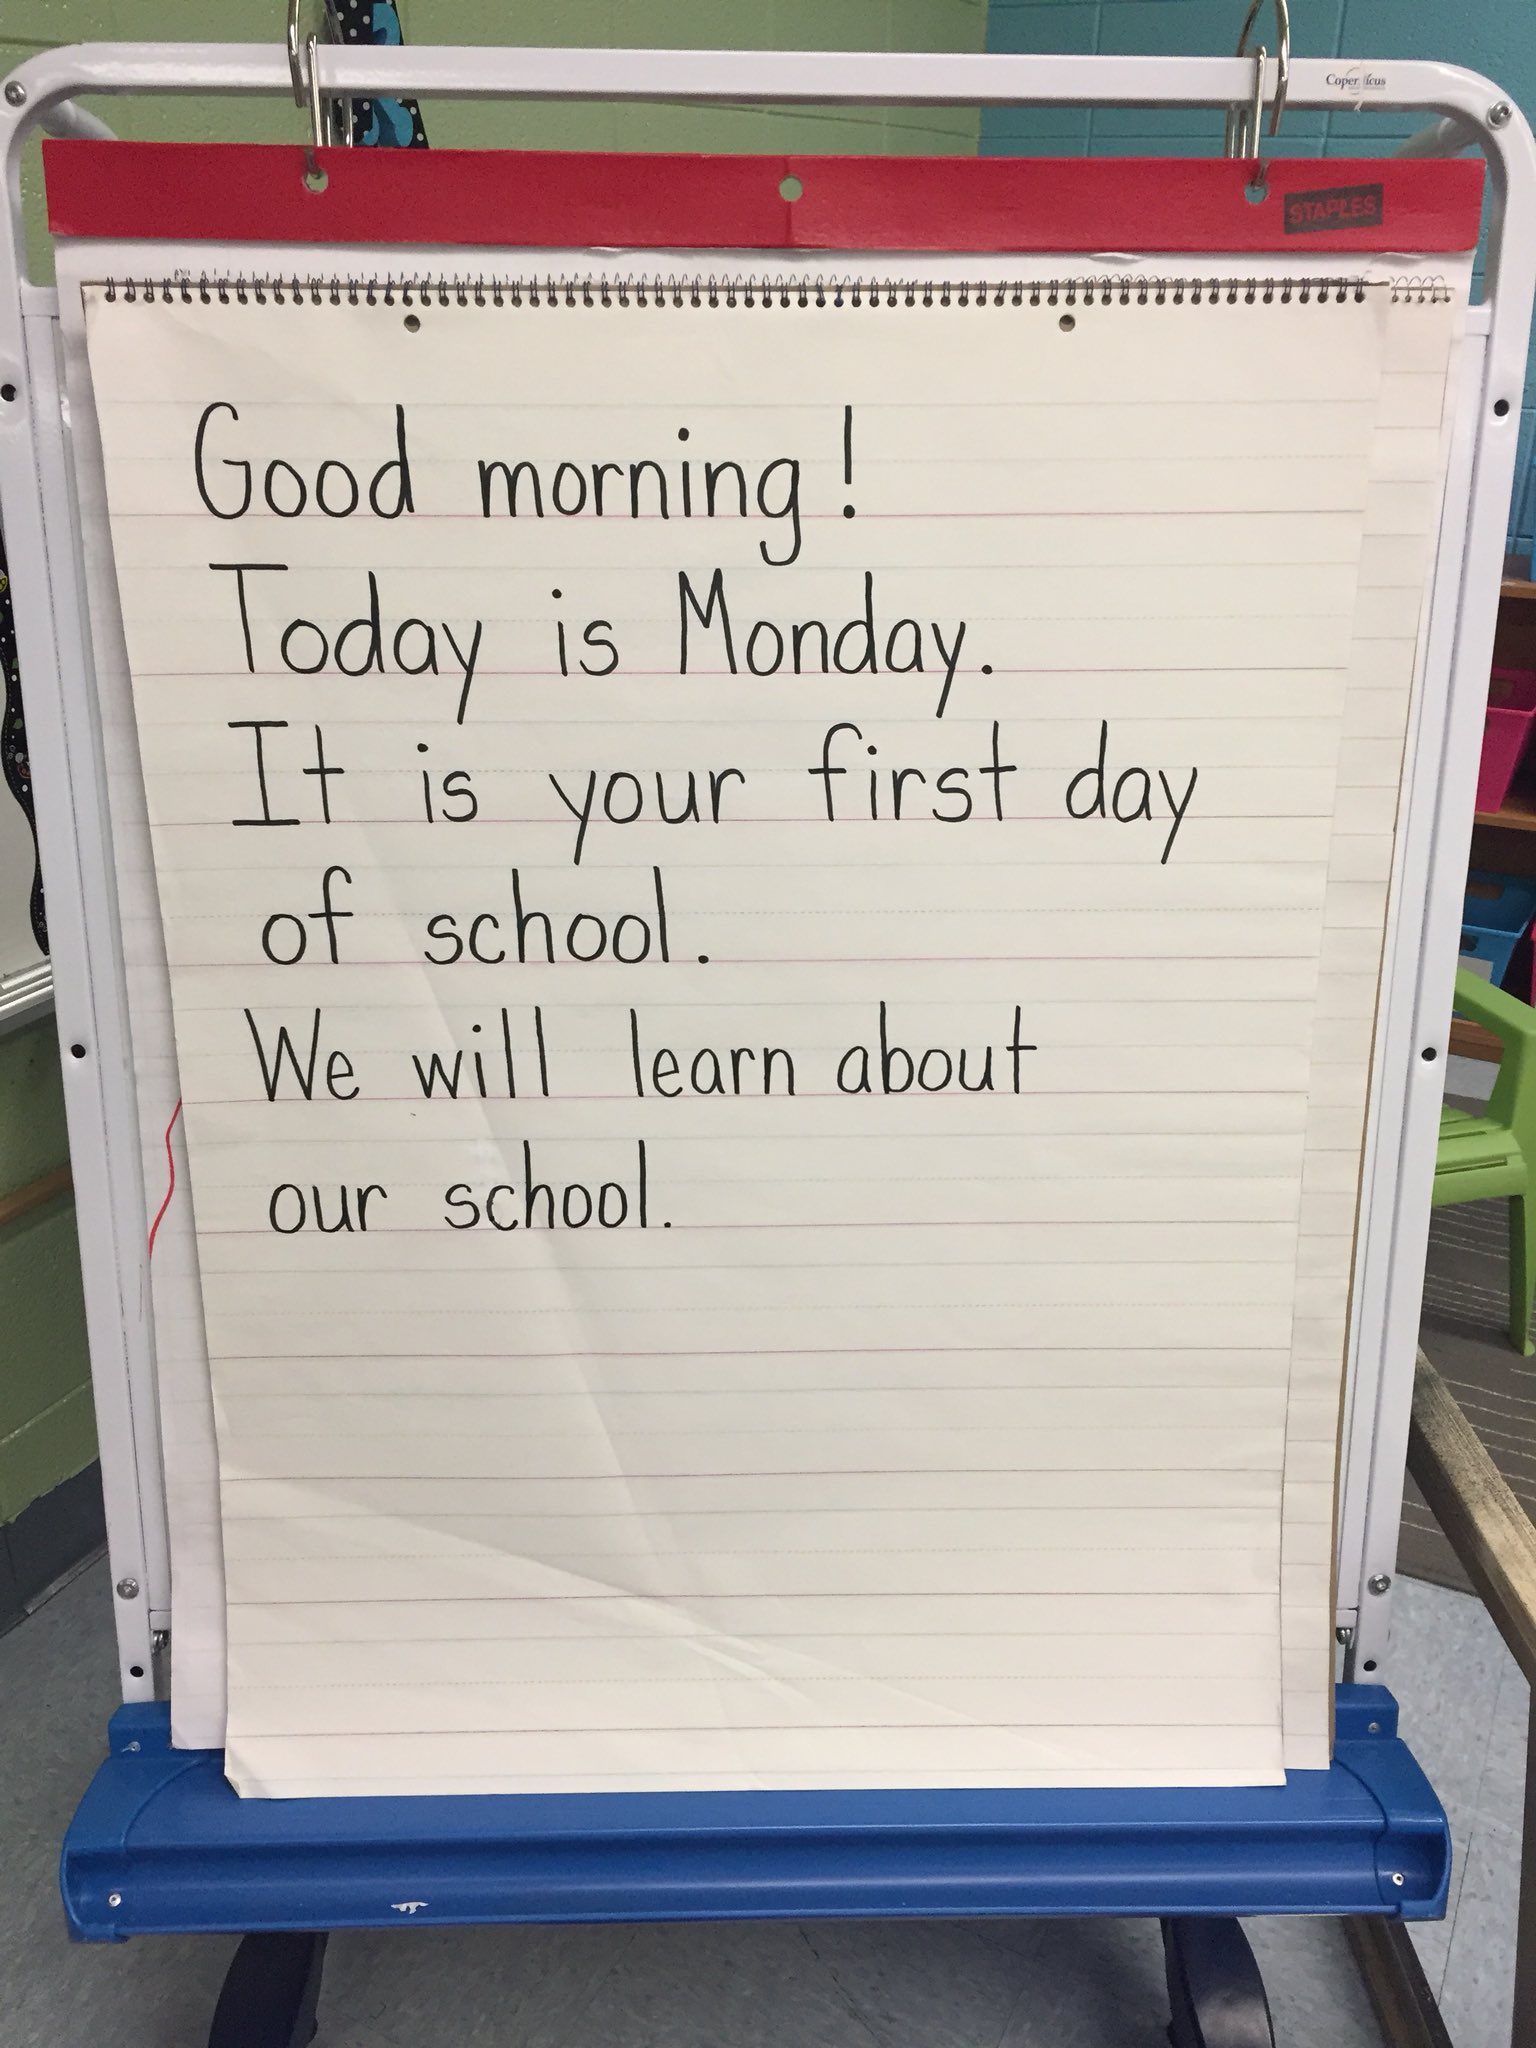 Copernicus
STAPLES
Good morning!
Today is Monday.
It is your first day
of school.
We will learn about
our school.